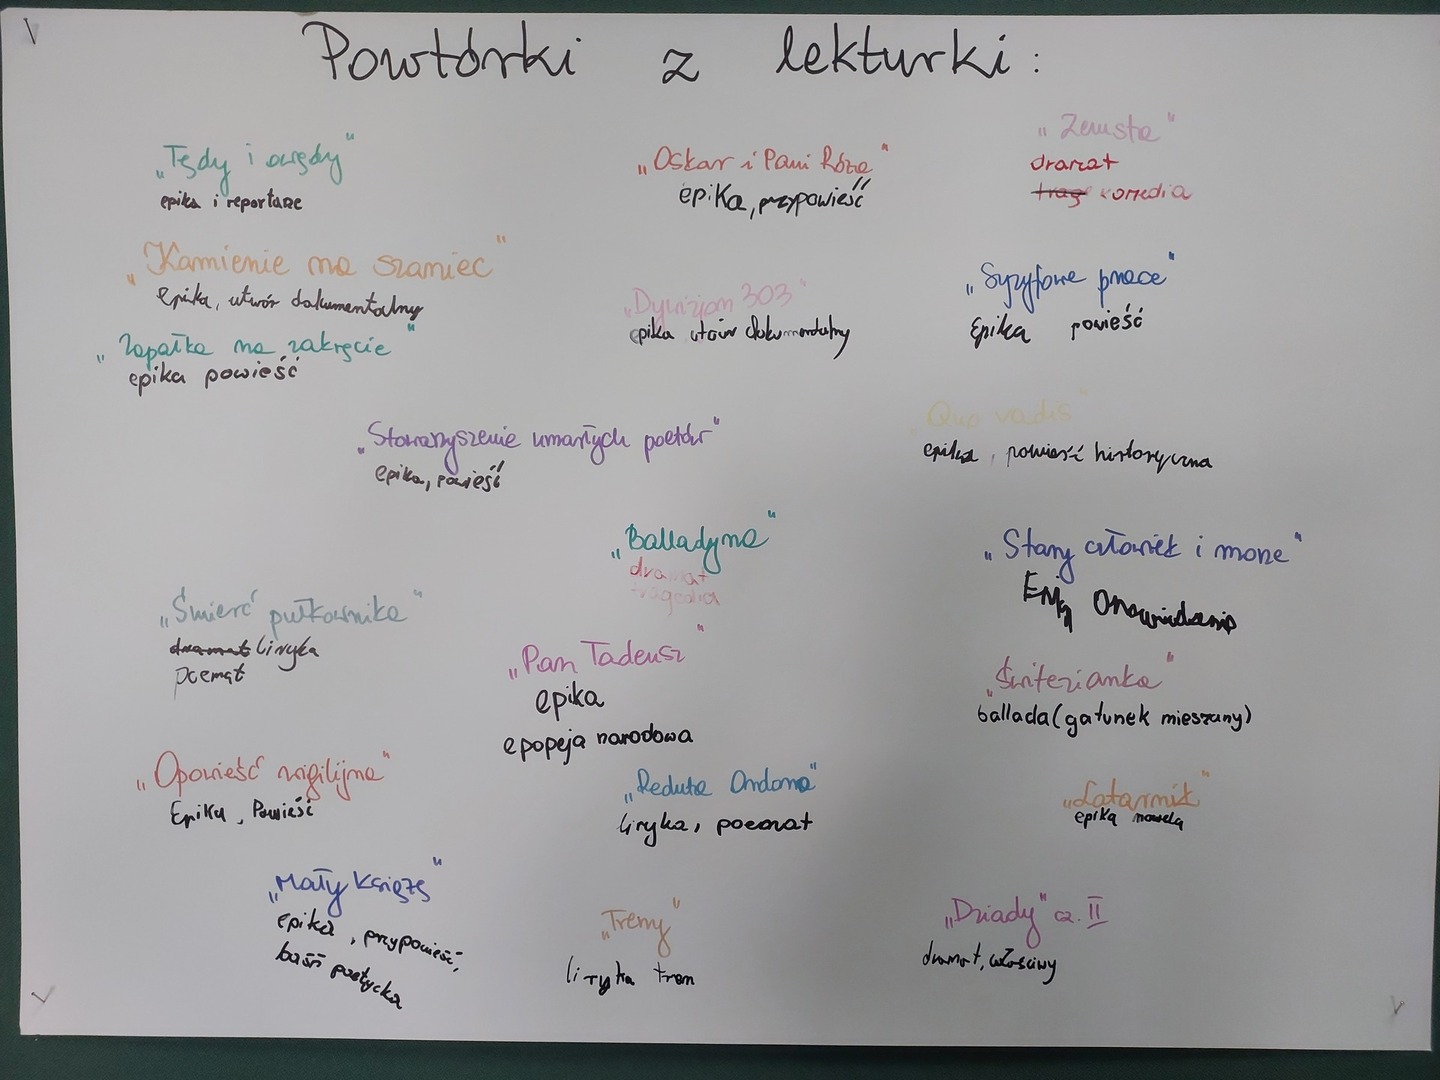 Powtórki z lekturki:
„Tędy i owędy"
epika i reportaż
„Oskar i Pani Róża"
epika, przypowieść
„Zemsta"
dramat
trag komedia
„Kamienie na szaniec"
epika, utwór dokumentalny
„Dywizjon 303"
epika utwór dokumentalny
„Syzyfowe prace"
Epika powieść
„Zapałka na zakręcie"
epika powieść
„Stowarzyszenie umarłych poetów"
epika, powieść
„Quo vadis"
epika, powieść historyczna
„Balladyna"
dramat
tragedia
„Stary człowiek i morze"
Opowiadanie
„Śmierć pułkownika"
dramat liryka
poemat
„Pan Tadeusz"
epika
epopeja narodowa
„Świtezianka"
ballada (gatunek mieszany)
„Opowieść wigilijna"
Epika, Powieść
„Reduta Ordona"
liryka, poemat
„Latarnik"
epika nowela
„Mały Książę"
epika, przypowieść,
baśń poetycka
„Treny"
liryka tren
„Dziady" cz. II
dramat, właściwy